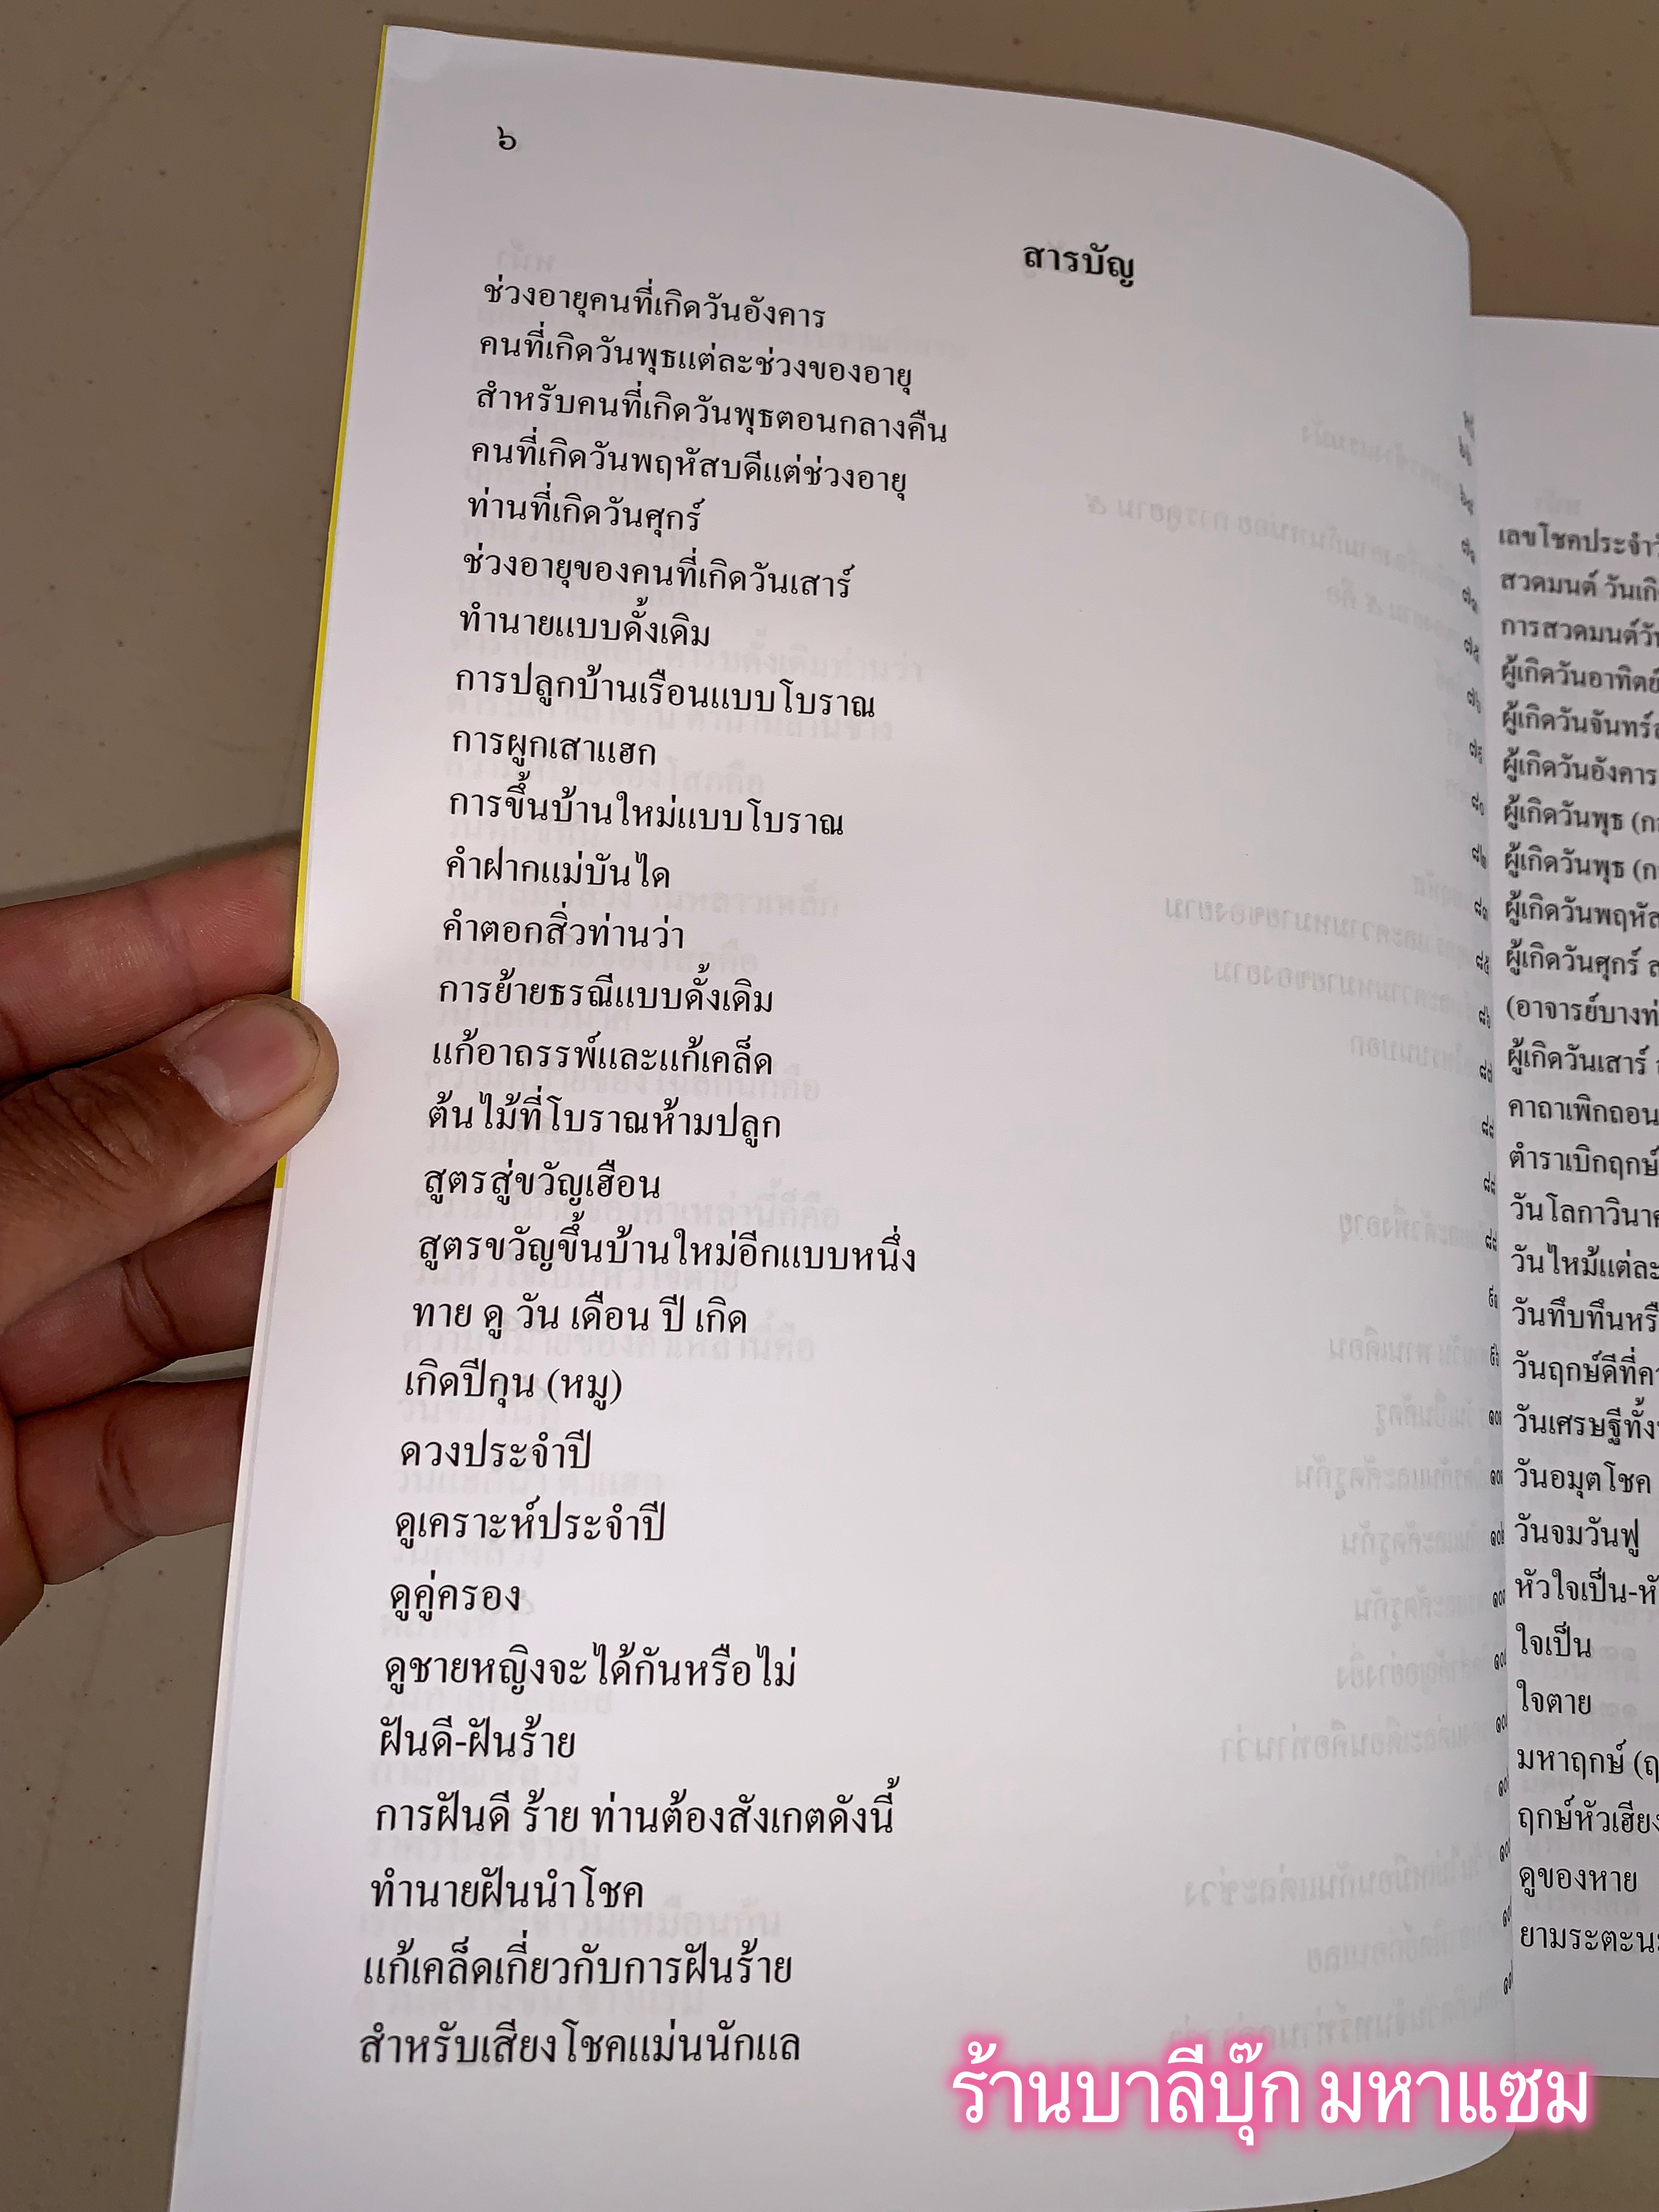 ๖
สารบัญ
ช่วงอายุคนที่เกิดวันอังคาร
คนที่เกิดวันพุธแต่ละช่วงของอายุ
สำหรับคนที่เกิดวันพุธตอนกลางคืน
คนที่เกิดวันพฤหัสบดีแต่ช่วงอายุ
ท่านที่เกิดวันศุกร์
ช่วงอายุของคนที่เกิดวันเสาร์
ทำนายแบบดั้งเดิม
การปลูกบ้านเรือนแบบโบราณ
การผูกเสาแฮก
การขึ้นบ้านใหม่แบบโบราณ
คำฝากแม่บันได
คำตอกสิ่วท่านว่า
การย้ายธรณีแบบดั้งเดิม
แก้อาถรรพ์และแก้เคล็ด
ต้นไม้ที่โบราณห้ามปลูก
สูตรสู่ขวัญเฮือน
สูตรขวัญขึ้นบ้านใหม่อีกแบบหนึ่ง
ทาย ดู วัน เดือน ปี เกิด
เกิดปีกุน (หมู)
ดวงประจำปี
ดูเคราะห์ประจำปี
ดูคู่ครอง
ดูชายหญิงจะได้กันหรือไม่
ฝันดี-ฝันร้าย
การฝันดี ร้าย ท่านต้องสังเกตดังนี้
ทำนายฝันนำโชค
แก้เคล็ดเกี่ยวกับการฝันร้าย
สำหรับเสียงโชคแม่นนักแล
เลขโชคประจำ
สวดมนต์ วันเกิ
การสวดมนต์วัน
ผู้เกิดวันอาทิตย์
ผู้เกิดวันจันทร์
ผู้เกิดวันอังคาร
ผู้เกิดวันพุธ (ก
ผู้เกิดวันพุธ (ก
ผู้เกิดวันพฤหัส
ผู้เกิดวันศุกร์ ส
(อาจารย์บางท่
ผู้เกิดวันเสาร์
คาถาเพิกถอน
ตำราเบิกฤกษ์
วันโลกาวินาศ
วันไหม้แต่ละ
วันทึบทึนหรื
วันฤกษ์ดีที่ค
วันเศรษฐีทั้ง
วันอมุตโชค
วันจมวันฟู
หัวใจเป็น-หั
ใจเป็น
ใจตาย
มหาฤกษ์ (ฤ
ฤกษ์หัวเฮียง
ดูของหาย
ยามระตะนะ
ร้านบาลีบุ๊ก มหาแซม